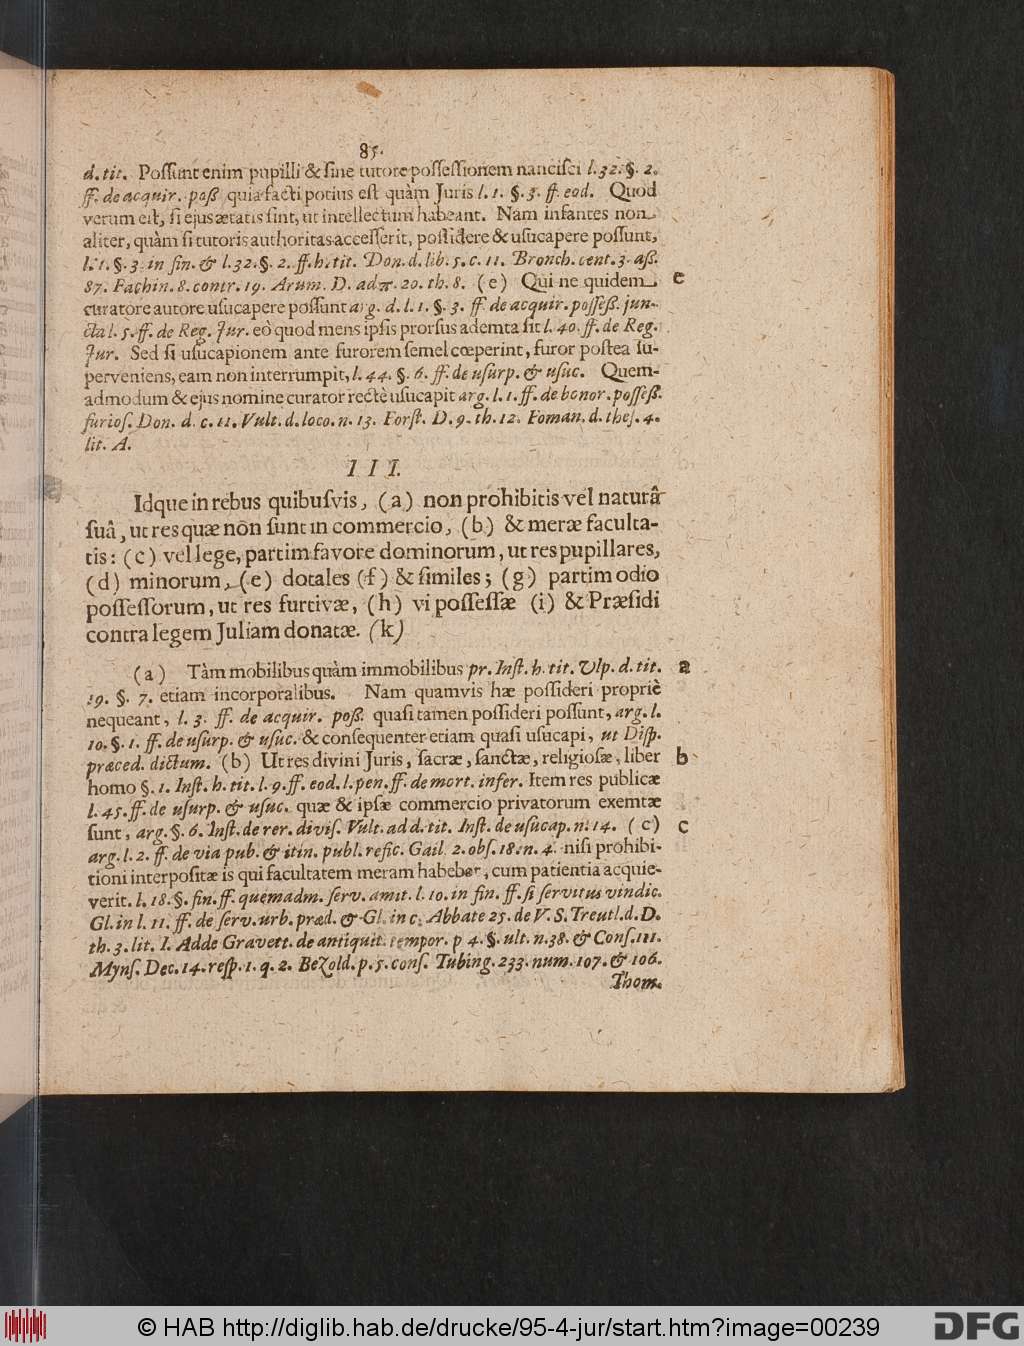 85.
d. tit. Possunt enim pupilli & sine tutore possessionem nancisci l. 32. §. 2.
ff. de acquir. poß. quia facti potius est quàm Juris l. 1. §. 3. ff. eod. Quod
verum est, si ejus ætatis sint, ut intellectum habeant. Nam infantes non
aliter, quàm si tutoris authoritas accesserit, possidere & usucapere possunt,
l. 1. §. 3. in fin. & l. 32. §. 2. ff. h. tit. Don. d. lib. 5. c. 11. Bronch. cent. 3. aß.
87. Fachin. 8. contr. 19. Arum. D. ad π. 20. th. 8. (e) Qui ne quidem
e
curatore autore usucapere possunt arg. d. l. 1. §. 3. ff. de acquir. posseß. jun-
cta l. 5. ff. de Reg. Jur. eò quod mens ipsis prorsus ademta sit l. 40. ff. de Reg.
Jur. Sed si usucapionem ante furorem semel cœperint, furor postea su-
perveniens, eam non interrumpit, l. 44. §. 6. ff. de usurp. & usuc. Quem-
admodum & ejus nomine curator rectè usucapit arg. l. 1. ff. de bonor. posseß.
furios. Don. d. c. 11. Vult. d. loco. n. 13. Forst. D. 9. th. 12. Foman. d. thes. 4.
lit. A.
III.
Idque in rebus quibusvis, (a) non prohibitis vel naturâ
suâ, ut res quæ nōn sunt in commercio, (b) & meræ faculta-
tis: (c) vel lege, partim favore dominorum, ut res pupillares,
(d) minorum, (e) dotales (f) & similes; (g) partim odio
possessorum, ut res furtivæ, (h) vi possessæ (i) & Præsidi
contra legem Juliam donatæ. (k)
(a) Tàm mobilibus quàm immobilibus pr. Inst. h. tit. Ulp. d. tit.
a
19. §. 7. etiam incorporalibus. Nam quamvis hæ possideri propriè
nequeant, l. 3. ff. de acquir. poß. quasi tamen possideri possunt, arg. l.
10. §. 1. ff. de usurp. & usuc. & consequenter etiam quasi usucapi, ut Disp.
præced. dictum. (b) Ut res divini Juris, sacræ, sanctæ, religiosæ, liber
b
homo §. 1. Inst. h. tit. l. 9. ff. eod. l. pen. ff. de mort. infer. Item res publicæ
l. 45. ff. de usurp. & usuc. quæ & ipsæ commercio privatorum exemtæ
sunt, arg. §. 6. Inst. de rer. divis. Vult. ad d. tit. Inst. de usucap. n. 14. (c)
c
arg. l. 2. ff. de via pub. & itin. publ. refic. Gail. 2. obs. 18. n. 4. nisi prohibi-
tioni interpositæ is qui facultatem meram habebat, cum patientia acquie-
verit. l. 18. §. fin. ff. quemadm. serv. amit. l. 10. in fin. ff. si servitus vindic.
Gl. in l. 11. ff. de serv. urb. præd. & Gl. in c. Abbate 25. de V. S. Treutl. d. D.
th. 3. lit. I. Adde Gravett. de antiquit. tempor. p 4. §. ult. n. 38. & Cons. 111.
Myns. Dec. 14. resp. 1. q. 2. Bezold. p. 5. cons. Tubing. 233. num. 107. & 106.
Thom.
© HAB http://diglib.hab.de/drucke/95-4-jur/start.htm?image=00239
DFG